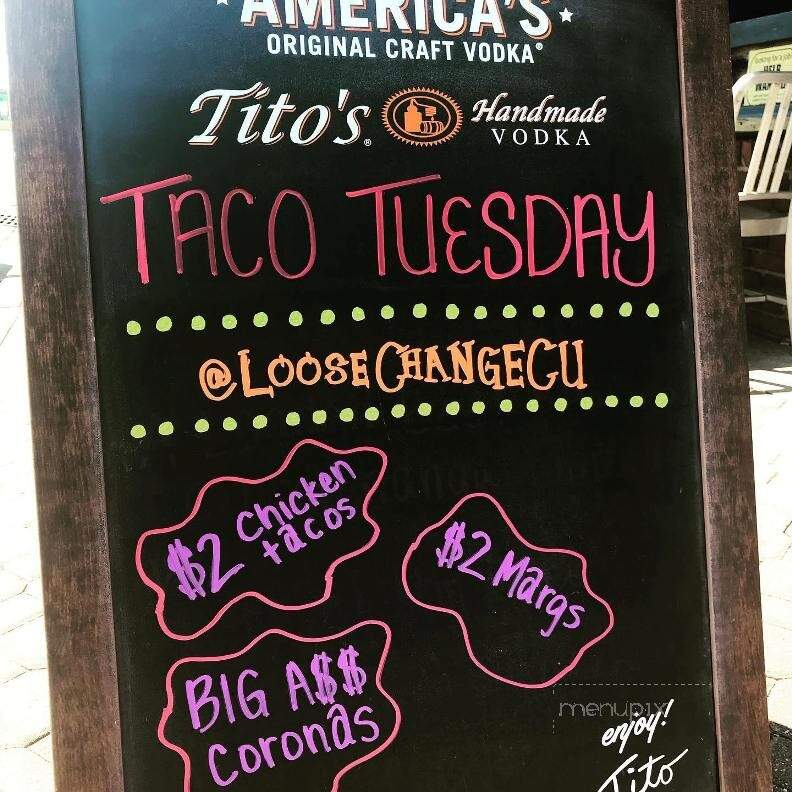 AMERICA'S
ORIGINAL CRAFT VODKA®
Tito's® Handmade
VODKA
TACO TUESDAY
@LOOSECHANGECU
$2 Chicken
tacos
$2 Margs
BIG A$$
Coronas
menupix
enjoy!
Tito